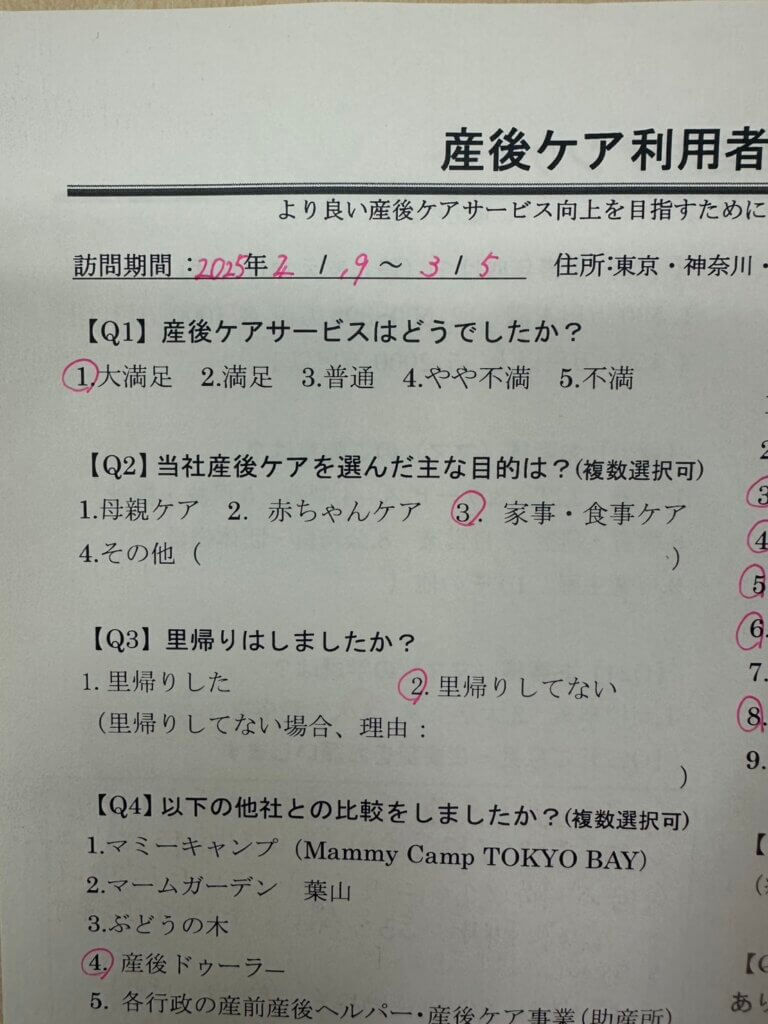 産後ケア利用者
より良い産後ケアサービス向上を目指すために
訪問期間：2025年2 / 19～3 / 5 住所:東京・神奈川・
【Q1】産後ケアサービスはどうでしたか？
1.大満足 2.満足 3.普通 4.やや不満 5.不満
【Q2】当社産後ケアを選んだ主な目的は？(複数選択可)
1.母親ケア 2. 赤ちゃんケア 3. 家事・食事ケア
4.その他（ ）
【Q3】里帰りはしましたか？
1. 里帰りした 2. 里帰りしてない
（里帰りしてない場合、理由：
）
【Q4】以下の他社との比較をしましたか？(複数選択可)
1.マミーキャンプ（Mammy Camp TOKYO BAY）
2.マームガーデン 葉山
3.ぶどうの木
4. 産後ドゥーラー
5. 各行政の産前産後ヘルパー・産後ケア事業(助産所)
2
3
4
5
6.
7.
8.
9.
【
【Q
あり